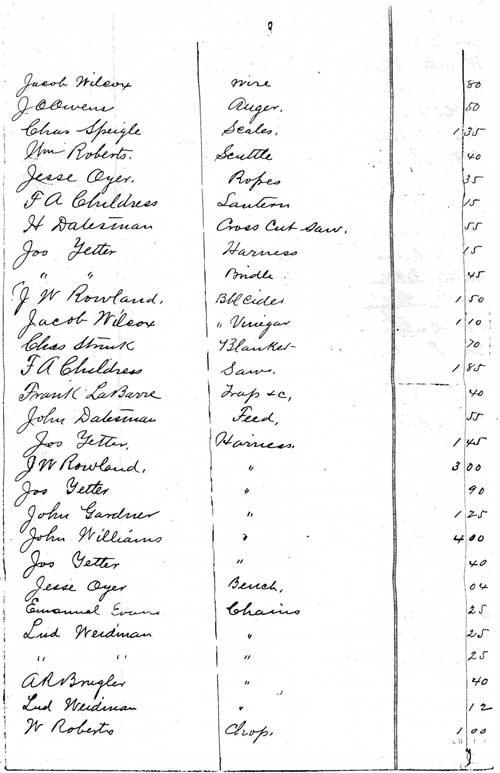 Jacob Wilcox Wire 80
J O Owens Auger. 50
Chas Speigle Scales. 1 35
Wm Roberts. Scuttle 40
Jesse Oyer. Ropes 35
F A Childress Lantern 15
H Datesman Cross Cut Saw. 55
Jos Yetter Harness 15
" " Bridle 45
J W Rowland. Bbl Cider 1 50
Jacob Wilcox " Vinegar 1 10
Chas Strunk Blanket 70
F A Childress Saw. 1 85
Frank LaBarre Trap &c, 40
John Datesman Feed, 55
Jos Yetter, Harness. 1 45
J W Rowland, " 3 00
Jos Yetter " 90
John Gardner " 1 25
John Williams " 4 00
Jos Yetter " 40
Jesse Oyer Bench, 04
Emanuel Evans Chains 25
Lud Weidman " 25
" " " 25
A R Brugler " 40
Lud Weidman " 12
W Roberts Chop. 1 00